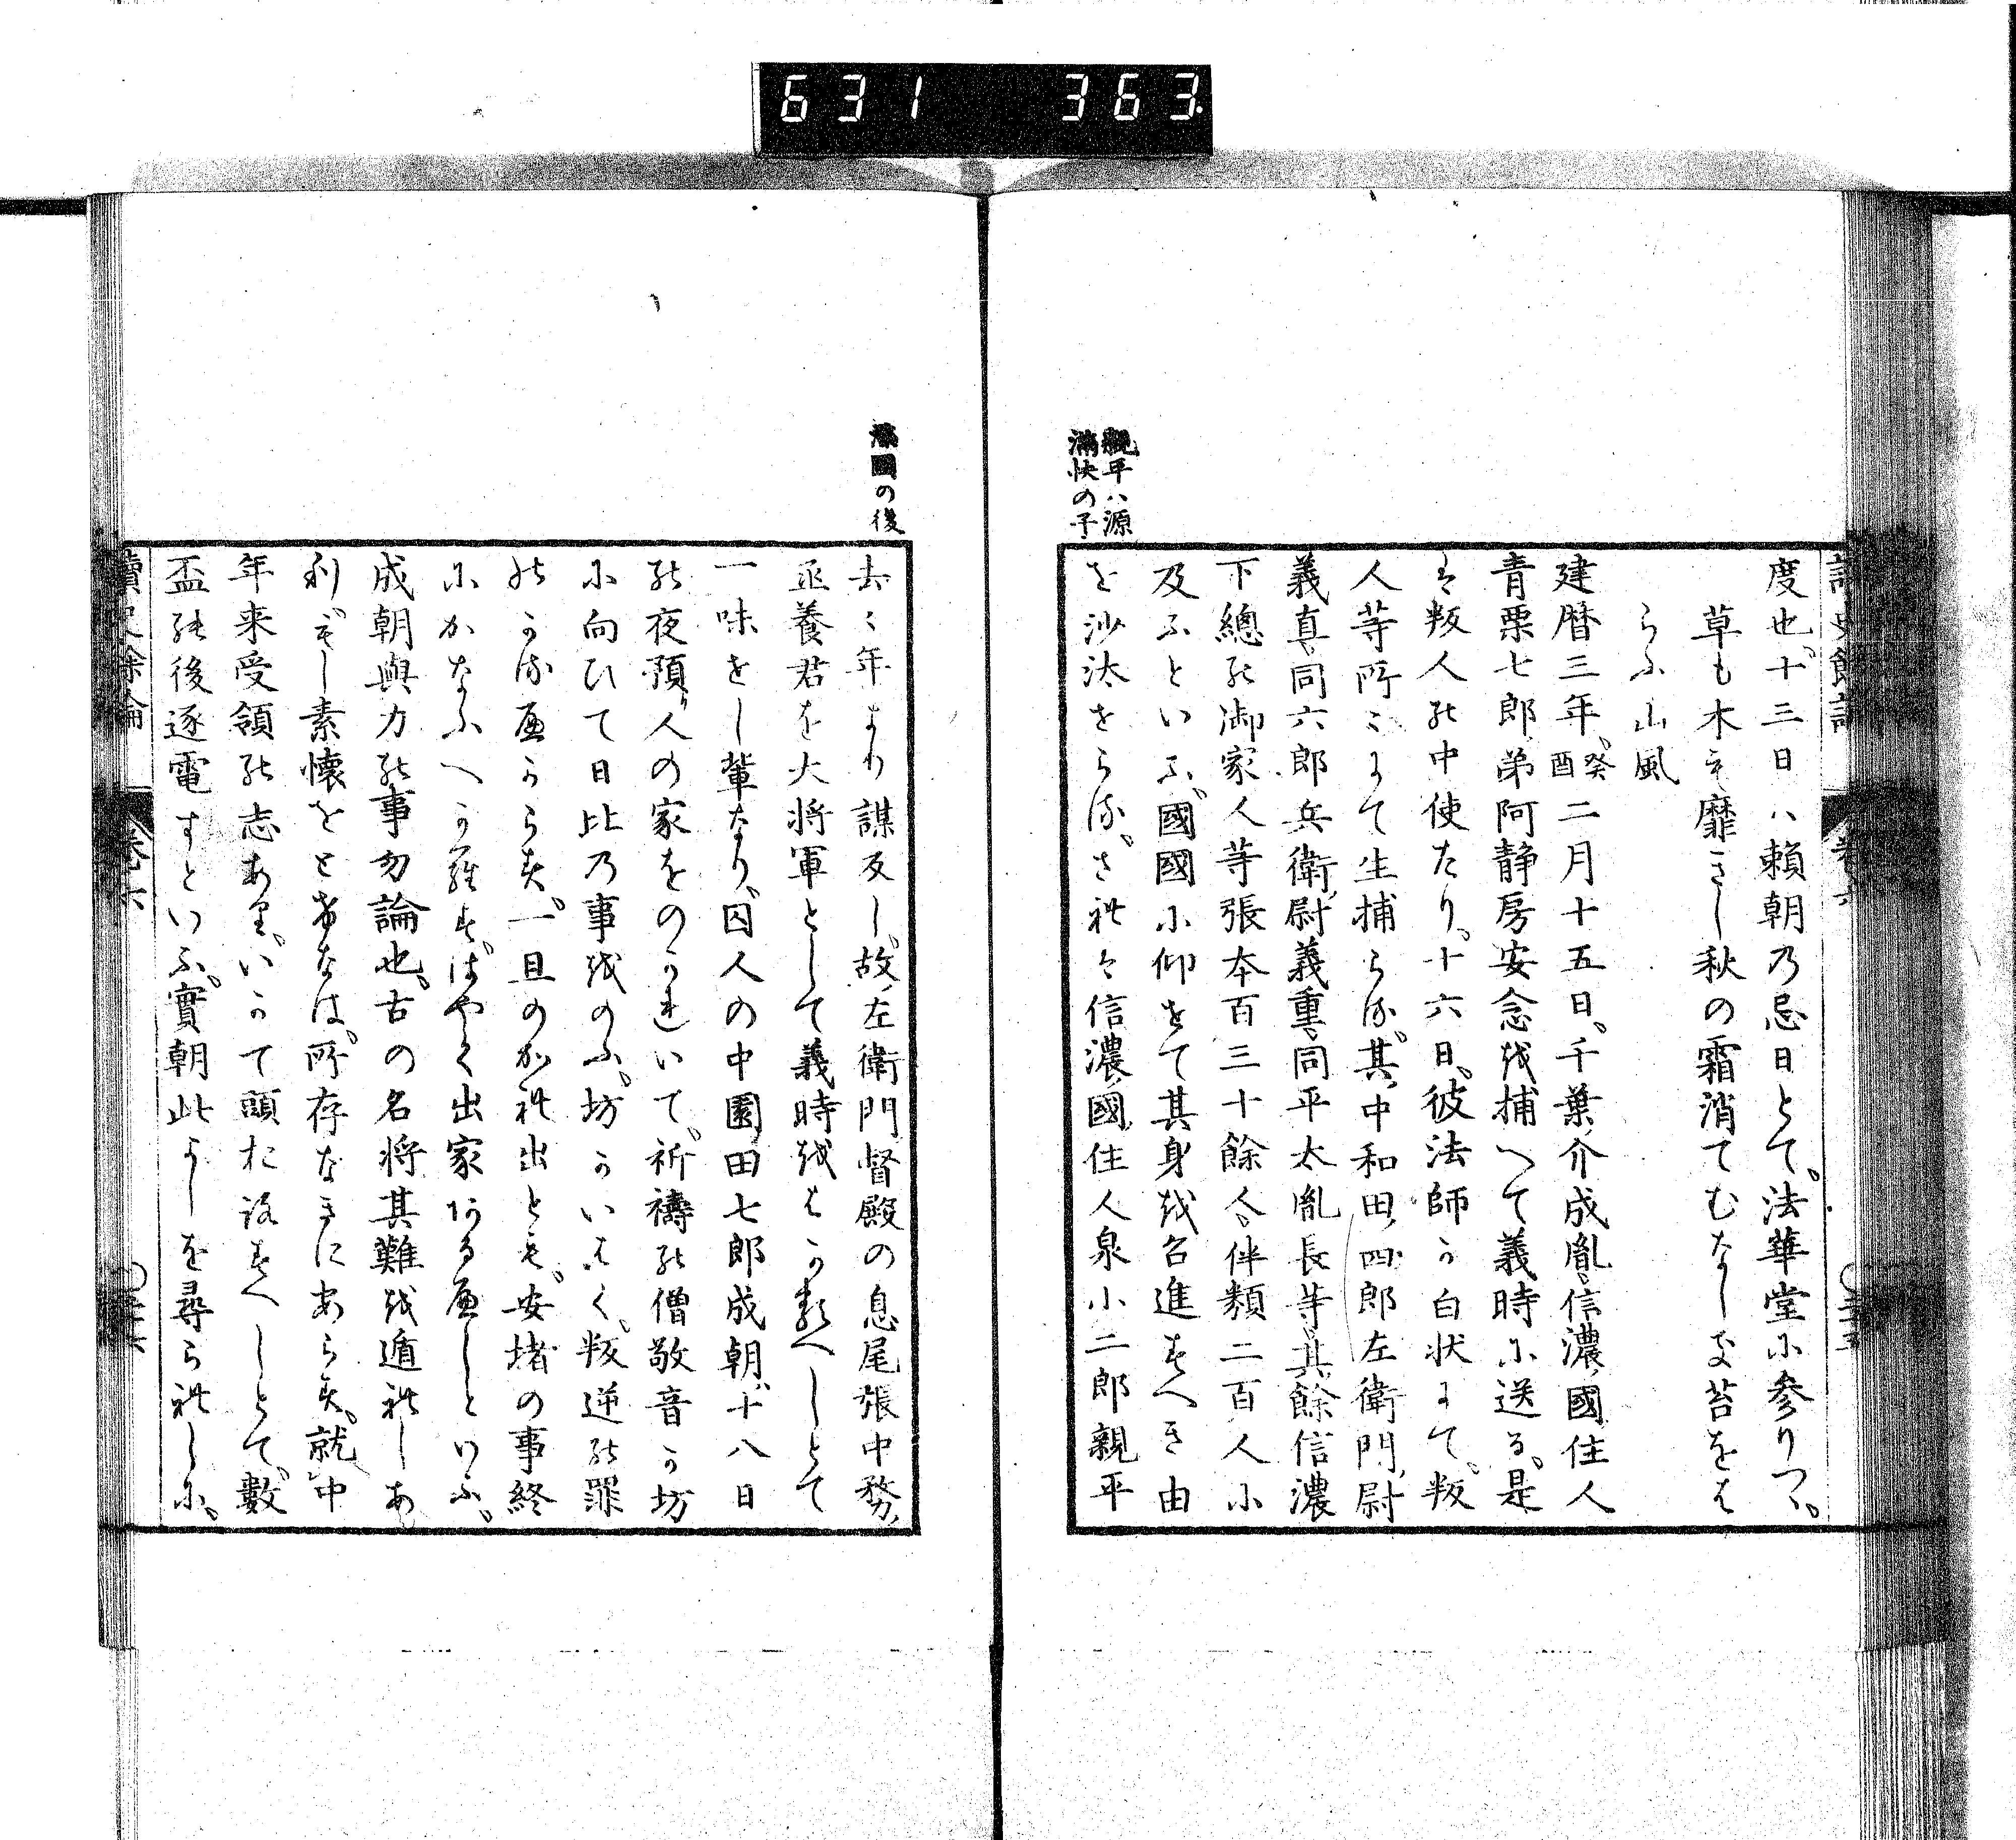 631 363
親平ハ源
満快の子
度也、十三日ハ頼朝乃忌日とて、法華堂に参りつゝ、
草も木も靡きし秋の霜消てむなしき苔をは
らふ山風
建暦三年、癸酉二月十五日、千葉介成胤、信濃國住人
青栗七郎、弟阿静房安念を捕へて義時に送る、是
は叛人の中使たり、十六日、彼法師か白状にて、叛
人等所々にて生捕らる、其中和田四郎左衛門尉
義直、同六郎兵衛尉義重、同平太胤長等、其餘信濃
下總の御家人等張本百三十餘人、伴類二百人に
及ふといふ、國國に仰せて其身を召進すへき由
を沙汰せらる、されは信濃國住人泉小二郎親平
の後
去々年より謀反し、故左衛門督殿の息尾張中務
丞養君を大将軍として義時をはかるへしとて
一味せし輩なり、囚人の中園田七郎成朝、十八日
の夜預り人の家をのかれいて、祈禱の僧敬音か坊
に向ひて日比の事をのふ、坊かいはく、叛逆の罪
のかる可からす、一旦のかれ出とも、安堵の事終
にかなふへからす、はやく出家ある可しといふ、
成朝與力の事勿論也、古の名将其難を遁れしあ
り、もし素懐をとけなは、所存なきにあらす、就中
年来受領の志あり、いかて頭おろすへしとて、數
盃の後逐電すといふ、實朝此よしを尋られしに、
讀史餘論 巻六